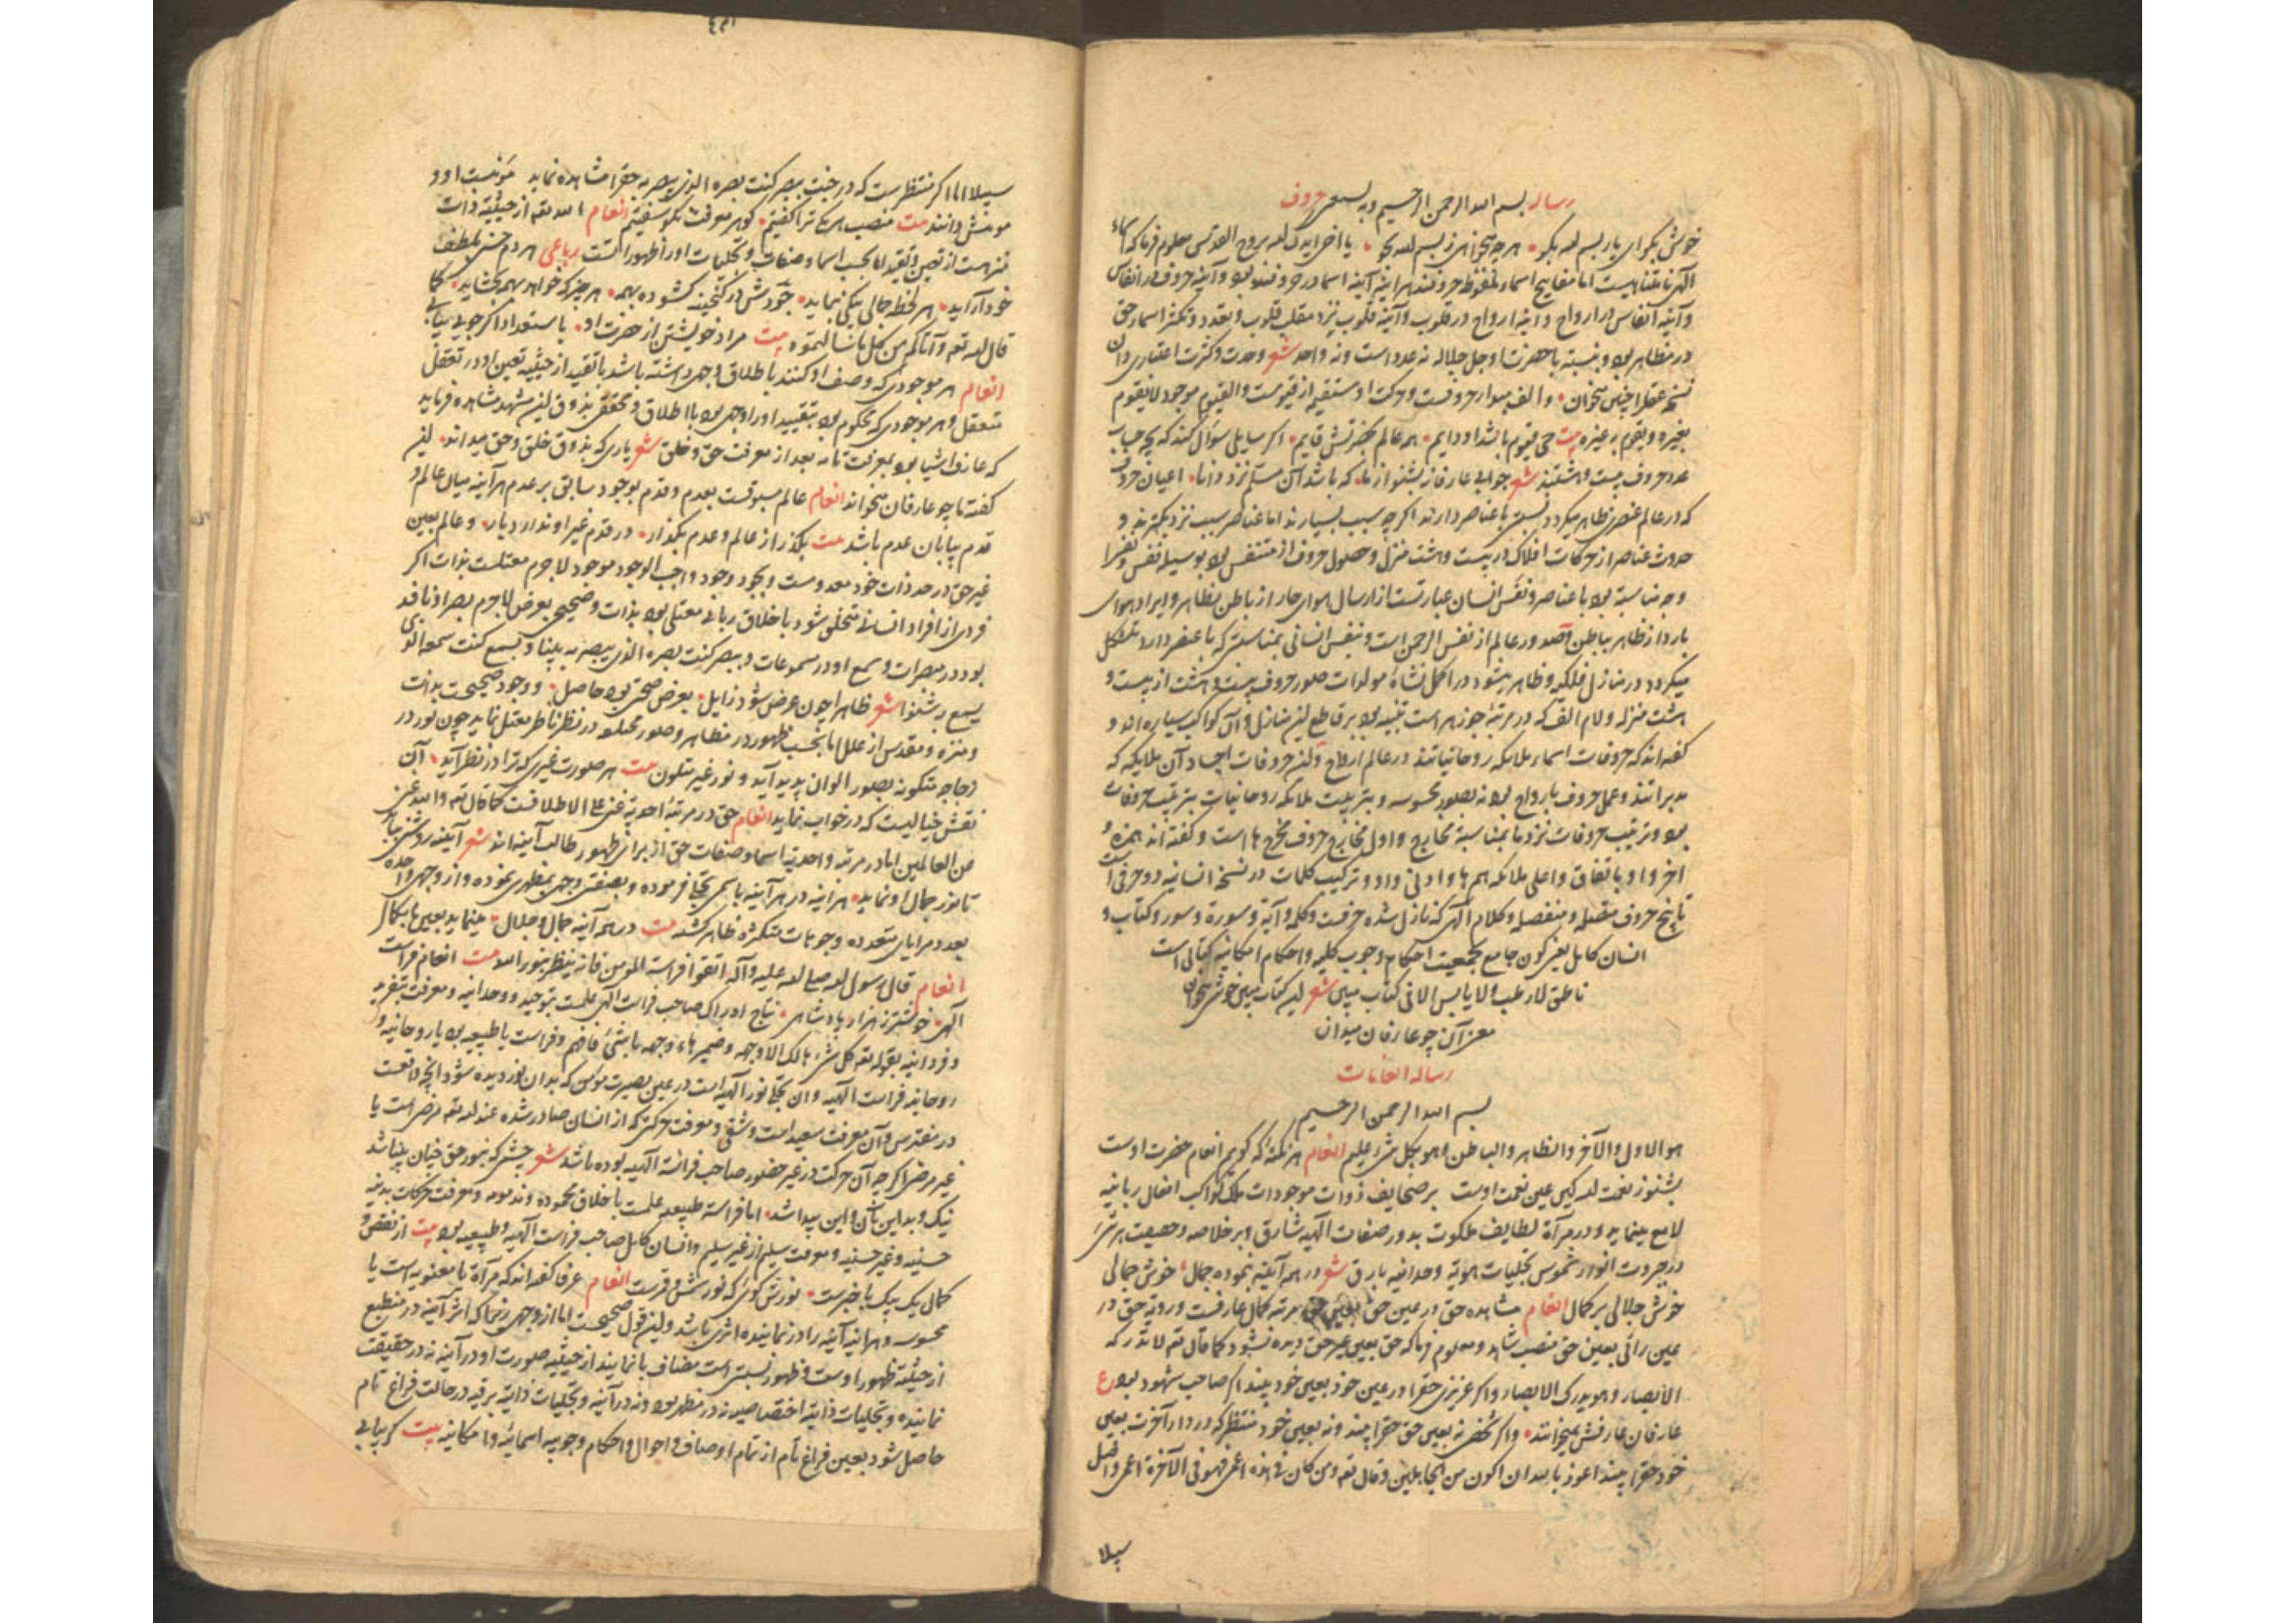 رساله بسم الله الرحمن الرحیم وبه نستعین حروف
خوش بگو ای یار بسم الله بگو هر چه میخواهی ز بسم الله بجو یا اخی ایدک الله بروح القدس معلوم فرما که اسماء
الهی نامتناهیست اما مفاتیح اسماء ملفوظ حروفند هر آینه آینه اسما در حروفند بود و آینه حروف در انفاس
و آینه انفاس در ارواح و آینه ارواح در قلوب و آینه قلوب نزد مقلب قلوب و تعدد و تکثر اسماء حق
در مظاهر بود و نسبت با حضرت او جل جلاله نه عدد است و نه واحد شعر وحدت و کثرت اعتباری دان
نسخه عقل را چنین میخوان و الف مبدا حروفست و حرکت او مستقیم از قیومست والقیوم موجود لا یقوم
بغیره و یقوم به غیره بیت حی قیوم باشد او دایم همه عالم بحضرتش قایم اگر سایلی سؤال کند که بچه حساب
عدد حروف بیست و هشتند شعر جوابی عارفانه بشنو از ما که باشد آن مسلم نزد دانا اعیان حروف
که در عالم عنصری ظاهر میگردد نسبتی با عناصر دارند اگر چه سبب بسیارند اما عناصر سبب نزدیکترند و
حدوث عناصر از حرکات افلاک در بیست و هشت منزل و حصول حروف از متنفس بود بوسیله نفس و نفس را
وجه مناسبة بود با عناصر و نفس انسان عبارتست از ارسال هوای حار از باطن بظاهر و ایراد هوای
بارد از ظاهر بباطن و صدور عالم از نفس الرحمن است و نفس انسانی بمناسبتی که با عنصر دارد متشکل
میگردد در منازل فلکی و ظاهر میشود در اکمل نشاة مولدات صور حروف بیست و هشت از بیست و
هشت منزله و لام الف که در مرتبه جوزهر است تنبیه بود بر قاطع این منازل و آن کواکب سیاره اند و
گفته اند که حروفات اسماء ملائکه روحانیاتند در عالم ارواح و این حروفات اجساد آن ملایکه که
مدبراتند و عمل حروف بارواح بود نه بصور محسوسه و تربیت ملائکه روحانیات بترتیب حروفات
بود و ترتیب حروفات نزد ما بمناسبة مخارج و اول مخارج حروف مخرج ها است و گفته اند همزه و
آخر واو باتفاق و اعلی ملائکه هم ها و ادنی واو و ترکیب کلمات در نسخه انسانیه دو حرفی است
تا پنج حروف متصله و منفصله و کلام الهی که نازل شده حرفست و کلمه و آیة و سورة و سور و کتاب و
انسان کامل یعنی کون جامع بجمعیت احکام وجوب کلیه و احکام امکانیه کتابی است
ناطق لا رطب ولا یابس الا فی کتاب مبین شعر این کتاب مبین خوش میخوان
معنی آن چو عارفان میدان
رساله انعامات
بسم الله الرحمن الرحیم
هو الاول والآخر والظاهر والباطن وهو بکل شیء علیم انعام هر نکته که گویم انعام حضرت اوست
بشنو ز نعمت الله کین عین نعمت اوست بر صحایف ذوات موجودات ملک کواکب افعال ربانیه
لامع مینماید و در مرآة لطایف ملکوت بدور صفات الهیه شارق و بر خلاصه و حقیقت هر شیء
در جبروت انوار شموس تجلیات هویة وحدانیه بارق شعر در همه آینه نموده جمال خوش جمالی
خوش جلالی بر کمال انعام مشاهده حق در عین حق بعین حق مرتبه کمال عارفست و رویة حق در
عین رائی بعین حق منصب شاهد و معلوم فرما که حق بعین غیر حق دیده نشود کما قال تعه لا تدرکه
الابصار وهو یدرک الابصار و اگر عزیزی حق را در عین خود بعین خود بیند اگر صاحب شهود بود ع
عارفان عارفش نمیخوانند و اگر شخصی نه بعین حق حق را بیند و نه بعین خود منتظر که در دار آخرت بعین
خود حق را بیند اعوذ بالله ان اکون من الجاهلین وقال تعه ومن کان فی هذه اعمی فهو فی الآخرة اعمی واضل
سبیلا
سبیلا اما اگر منتظر است که در جنت ببصر کنت بصره الذی یبصر به حق را مشاهده نماید مؤمنست او و
مؤمنش دانند بیت منصب هر یک ترا گفتیم گوهر معرفت نکو سفتیم انعام الله تعه از حیثیة ذات
منزهست از تعین و تقید اما بحسب اسما و صفات و تجلیات او را ظهوراتست رباعی هر دم حسنی بلطف
خود آراید هر لحظه جمالی بیکی بنماید خود در گنجینه گشوده بر همه هر چیز که خواهد همه بخشاید کما
قال الله تعه وآتاکم من کل ما سألتموه بیت مراد خویشتن از حضرت او باستعداد اگر جویی بیابی
انعام هر موجودی که وصف او کنند باطلاق وجهی داشته باشد باتقید از حیثیة تعین او در تعقل
متعقل و هر موجودی که محکوم بود بتقیید او را وجهی بود با اطلاق و محقق بذوق این مشهد مشاهده فرماید
که عارف اشیا بود بمعرفت تامه بعد از معرفت حق و خلق شعر یاری که بذوق خلق و حق میداند این
گفته ما چو عارفان میخواند انعام عالم مسبوقست بعدم و قدم بوجود سابق بر عدم هر آینه میان عالم و
قدم بیابان عدم باشد بیت بگذر از عالم و عدم بگذار در قدم غیر او ندارد دیار و عالم یعنی
غیر حق در حد ذات خود معدومست و بجود وجود واجب الوجود موجود لاجرم معتلست بذات اگر
فردی از افراد انسانی متخلق شود باخلاق ربانی معتلی بود بذات و صحیح بعرض لاجرم بصر او نافذ
بود در مبصرات و سمع او در مسموعات و ببصر کنت بصره الذی یبصر به بینا و بسمع کنت سمعه الذی
یسمع به شنوا شعر ظاهرا چون عرض شود زایل بعرض صحتی بود حاصل و وجود صحیحست بذات
و منزه و مقدس از علل اما بحسب ظهور در مظاهر و صور مختلفه در نظر ناظر معتل نماید چون نور در
زجاجه متلونه بصور الوان پدید آید و نور غیر متلون بیت هر صورت غیری که ترا در نظر آید آن
نقش خیالیست که در خواب نماید انعام حق در مرتبه احدیة غنی علی الاطلاقست کما قال تعه والله غنی
عن العالمین اما در مرتبه واحدیة اسما و صفات حق از برای ظهور طالب آینه اند شعر آینه روشنی بباید
تا نور جمال او نماید هر آینه در هر آینه باسمی تجلی فرموده و بصفتی وجهی بمظهری نموده و از وجهی واحده
بعدد مرایای متعدده وجوهات متکثره ظاهر گشته بیت در همه آینه جمال و جلال مینماید بعین ما بکمال
انعام قال رسول الله صلی الله علیه وآله اتقوا فراسة المؤمن فانه ینظر بنور الله بیت انعام فراست
الهی خوشتر ز هزار پادشاهی نتایج ادراک صاحب فراست الهی علمست بتوحید و وحدانیه و معرفت بتفرید
و فردانیه بقوله تعه کل شیء هالک الا وجهه و ضمیر هاء وجهه باشیء فافهم و فراست یا طبیعیه بود یا روحانیه و
روحانیه فراست الهیه و آن تجلی نور الهیه است در عین بصیرت مؤمن که بدان نور دیده شود آنچه واقعست
در متفرس و آن معرفت سعید است و شقی و معرفت حرکتی که از انسان صادر شده عند الله تعه مرضی است یا
غیر مرضی اگر چه آن حرکت در غیر حضور صاحب فراسة الهیه بوده باشد شعر چشمی که بنور حق چنان بینا شد
نیک و بد این و آن و این پیدا شد اما فراسة طبیعیه علمست باخلاق محموده و مذمومه و معرفت حرکات بدنیه
حسنیه و غیر حسنیه و معرفت سلیم از غیر سلیم و انسان کامل صاحب فراست الهیه و طبیعیه بود بیت از نقص و
کمال یک بیک باخبرست نورش گوئی که نور شمس و قمرست انعام عرفا گفته اند که مرآة یا معنویه است یا
محسوسه و هر آینه آینه را در نماینده اثری باشد و این قول صحیحست اما از وجهی زیرا که اثر آینه در منطبع
از حیثیة ظهور اوست و ظهور نسبتی است مضاف بنماینده از حیثیه صورت او در آینه نه در حقیقت
نماینده و تجلیات ذاتیه اختصاصیه نه در مظهر بود و نه در آینه و تجلیات ذاتیه برقیه در حالت فراغ تام
حاصل شود یعنی فراغ تام از تمام اوصاف و احوال و احکام وجوبیه اسمائیه و امکانیه بیت گر بیابی